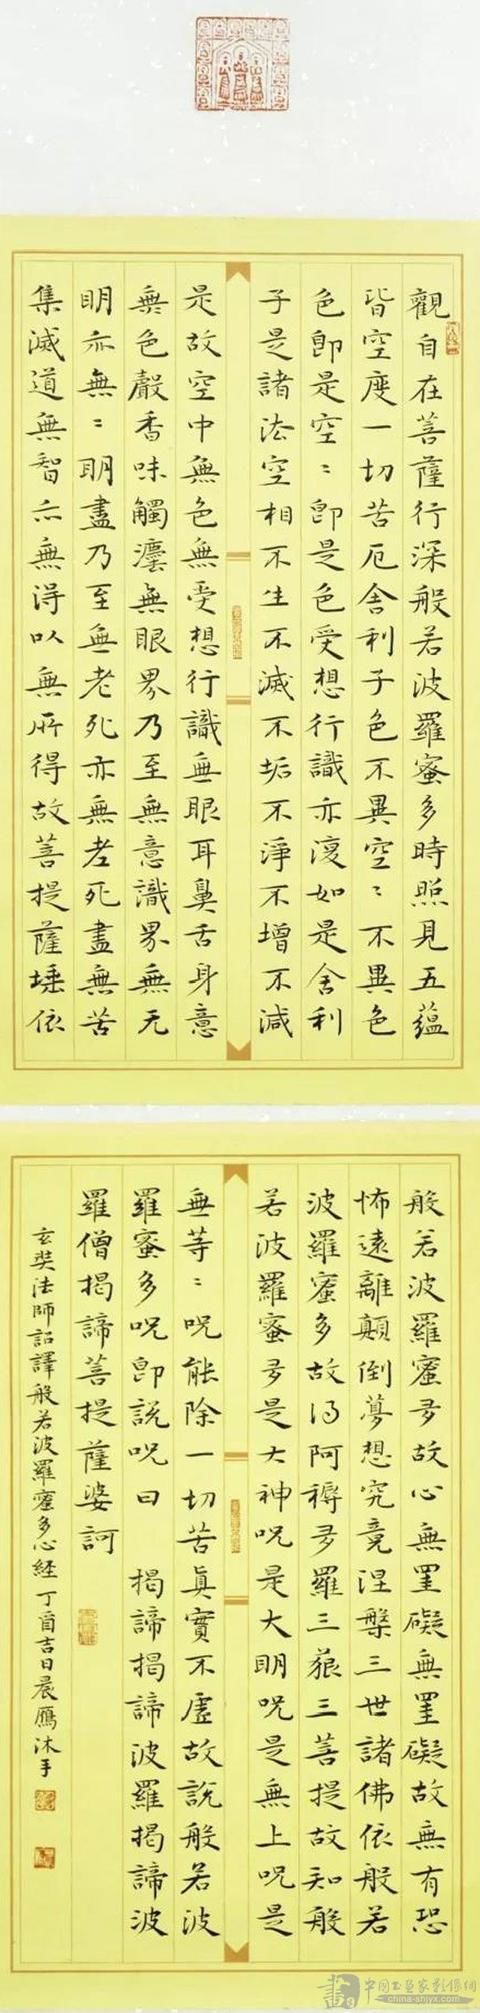 觀自在菩薩行深般若波羅蜜多時照見五蘊
皆空度一切苦厄舍利子色不異空〻不異色
色即是空〻即是色受想行識亦復如是舍利
子是諸法空相不生不滅不垢不淨不增不減
是故空中無色無受想行識無眼耳鼻舌身意
無色聲香味觸灋無眼界乃至無意識界無无
明亦無〻明盡乃至無老死亦無老死盡無苦
集滅道無智亦無得以無所得故菩提薩埵依
般若波羅蜜多故心無罣礙無罣礙故無有恐
怖遠離顛倒夢想究竟涅槃三世諸佛依般若
波羅蜜多故得阿耨多羅三藐三菩提故知般
若波羅蜜多是大神咒是大明咒是無上咒是
無等〻咒能除一切苦真實不虛故說般若波
羅蜜多咒即說咒曰 揭諦揭諦波羅揭諦波
羅僧揭諦菩提薩婆訶
玄奘法師詔譯般若波羅蜜多心經丁酉吉日晨雁沐手
中国书画家影像网
china-shjyx.com